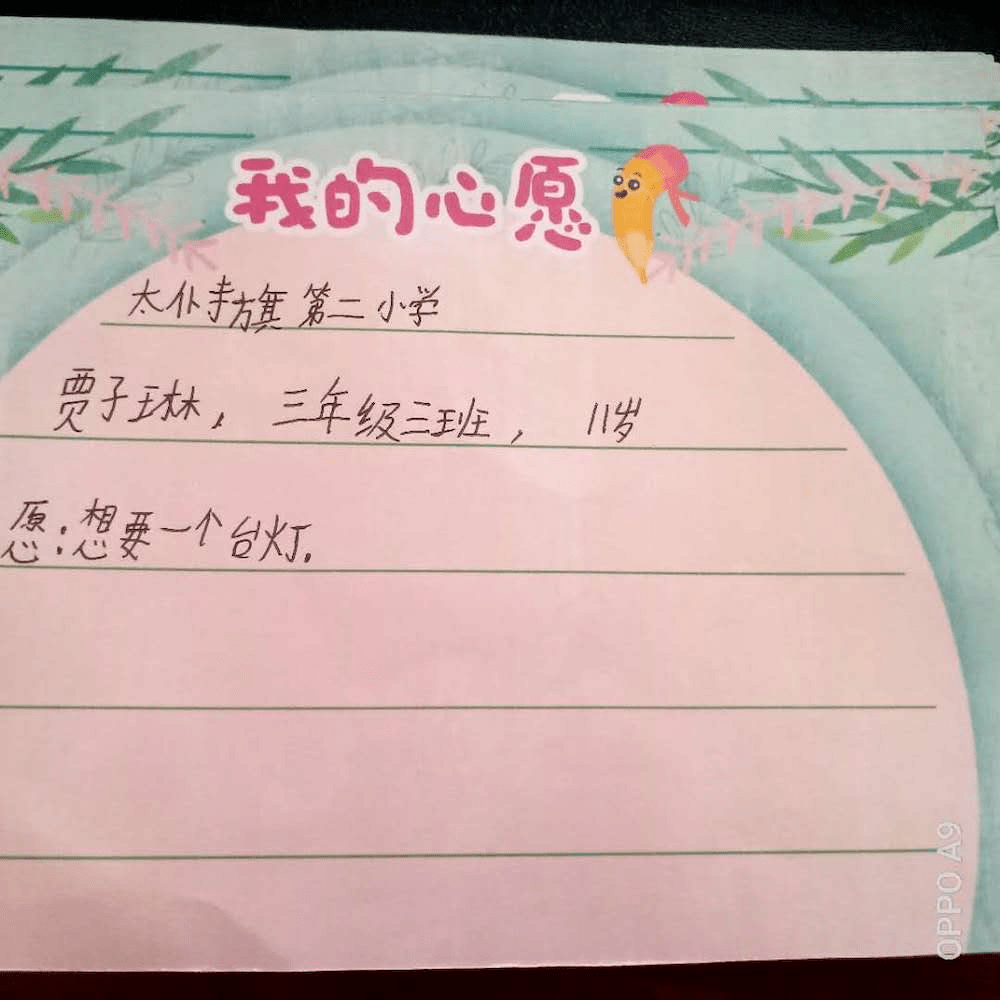 我的心愿
太仆寺旗第二小学
贾子琳, 三年级三班, 11岁
愿:想要一个台灯.
OPPO A9